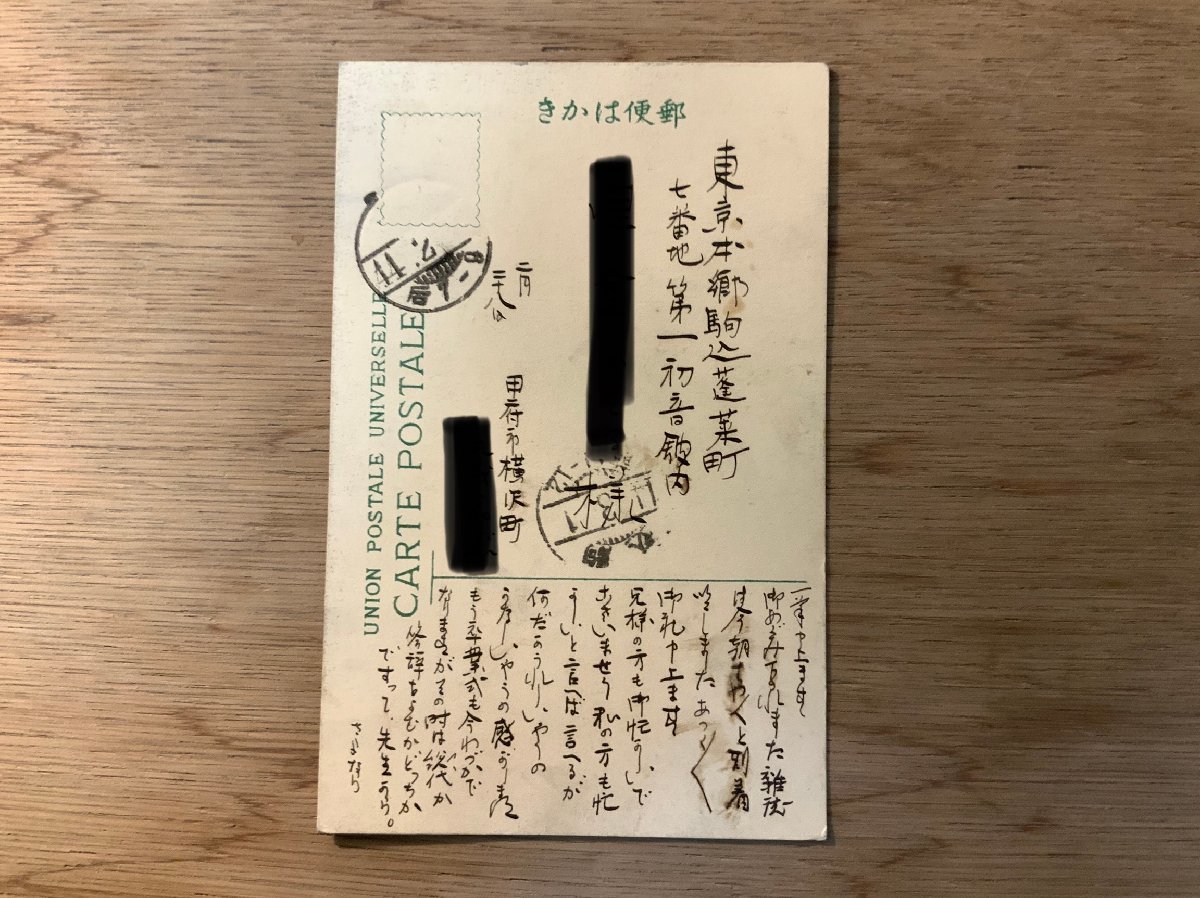 きかは便郵
東京本郷駒込蓬莱町
七番地 第一初音館内
様
二月
甲府市横沢町
UNION POSTALE UNIVERSELLE
CARTE POSTALE
一筆申上ます
御めぐみ下されました雑誌
は今朝 と到着
致しました あつく
御礼申上ます
兄様の方も御忙がしいで
ございませう 私の方も忙
しいと言へば言へるが
何だかうれしいやうの
しいやうの感がします
もう卒業式も今わづかで
なりますがその時は総代か
答辞をよむかどつちか
ですつて、先生から。
さよなら